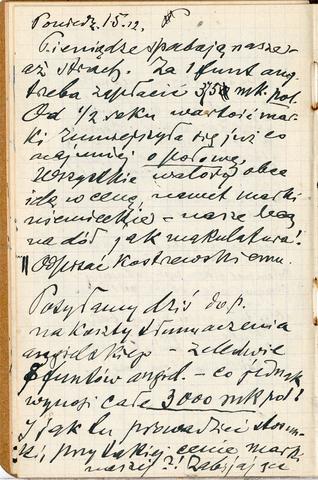 Poniedz. 15.12.
Pieniądze spadają nasze –
aż strach. Za 1 funt ang.
trzeba zapłacić 350 mk. pol.
Od 1/2 roku wartość mar-
ki zmniejszyła się już co
najmniej o połowę,
wszystkie walory obce
idą w cenę, nawet marki
niemieckie – nasze lecą
na dół jak makulatura!
Odpisać Kostrzewskiemu.
Posyłamy dziś do p.
na koszty tłumaczenia
angielskiego – zaledwie
8 funtów angiel. – co jednak
wynosi całe 3000 mk pol!
I jak tu prowadzić stosun-
ki, przy takiej cenie marki
naszej?! Zabijają